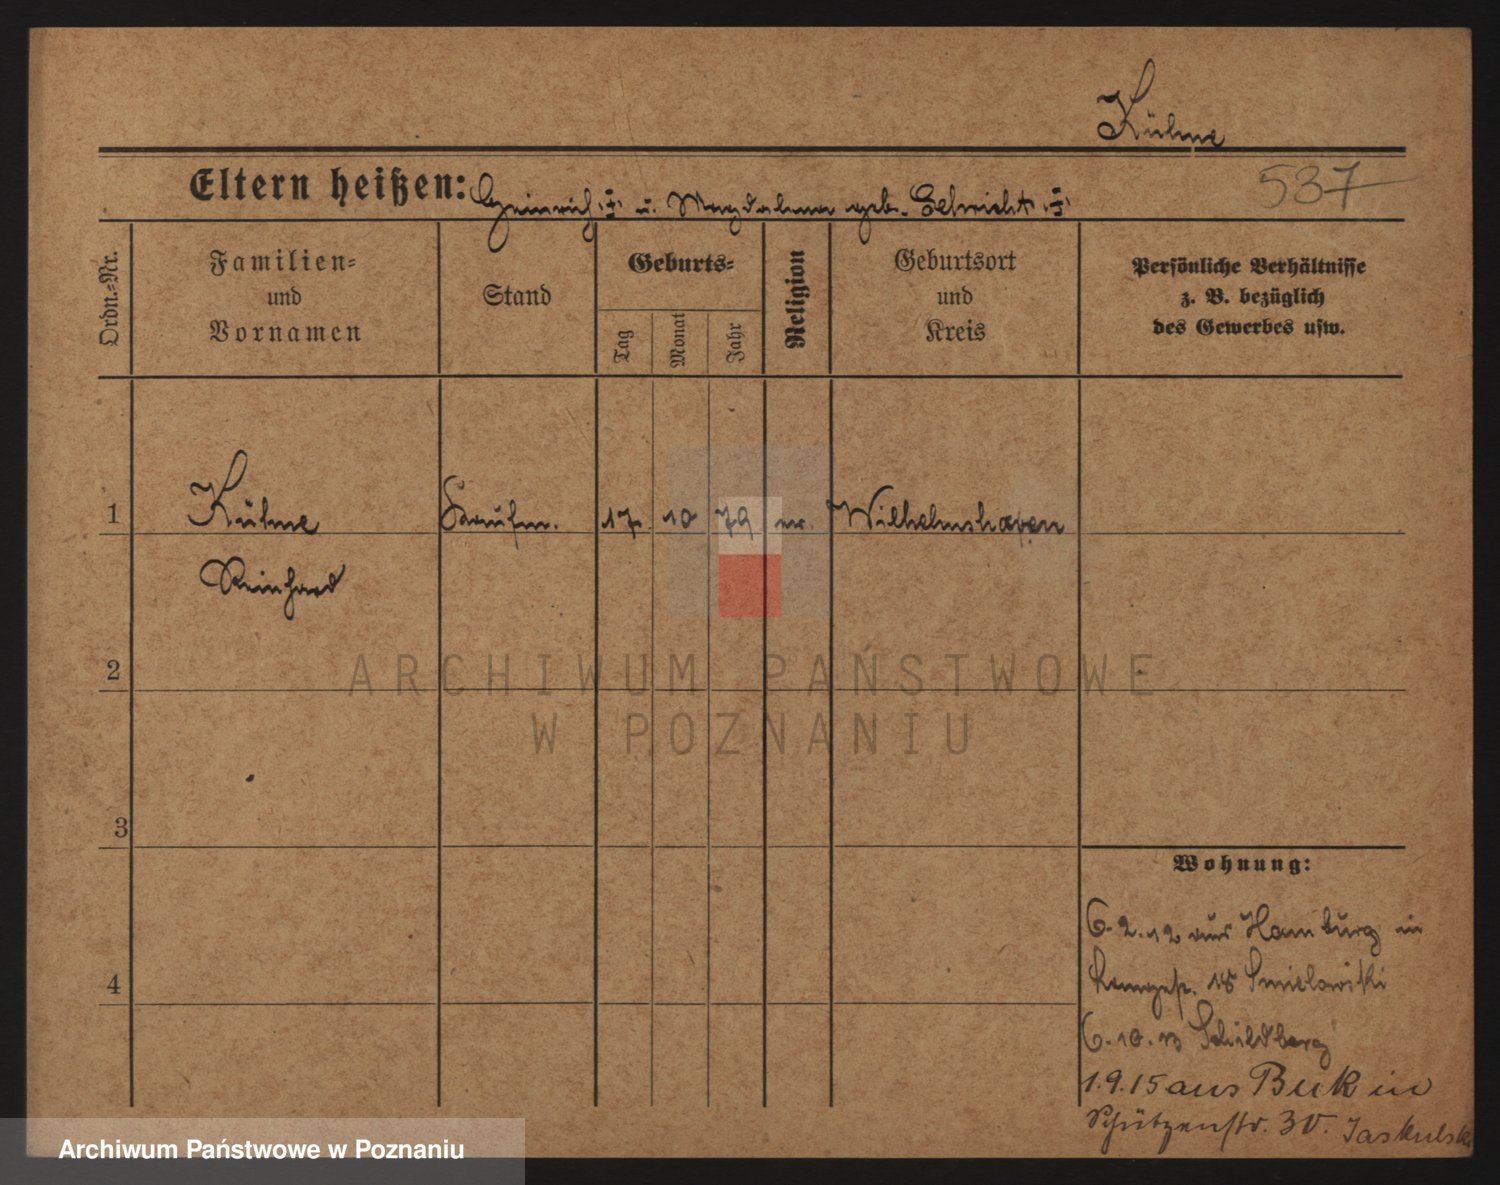 Kühne
537
Eltern heißen: Heinrich † u. Magdalena geb. Gehricht †
Ordn.-Nr.
Familien-
und
Vornamen
Stand
Geburts-
Tag
Monat
Jahr
Religion
Geburtsort
und
Kreis
Persönliche Verhältnisse
z. B. bezüglich
des Gewerbes usw.
1 Kühne Kaufm. 17. 10 79 ev. Wilhelmshaven
Reinhard
2
3
4
Wohnung:
6.2.12 aus Hamburg in
18 Smielowski
6.10.13 Schildberg
1.9.15 aus Buk in
Schützenstr. 30. Jaskulski
ARCHIWUM PAŃSTWOWE
W POZNANIU
Archiwum Państwowe w Poznaniu